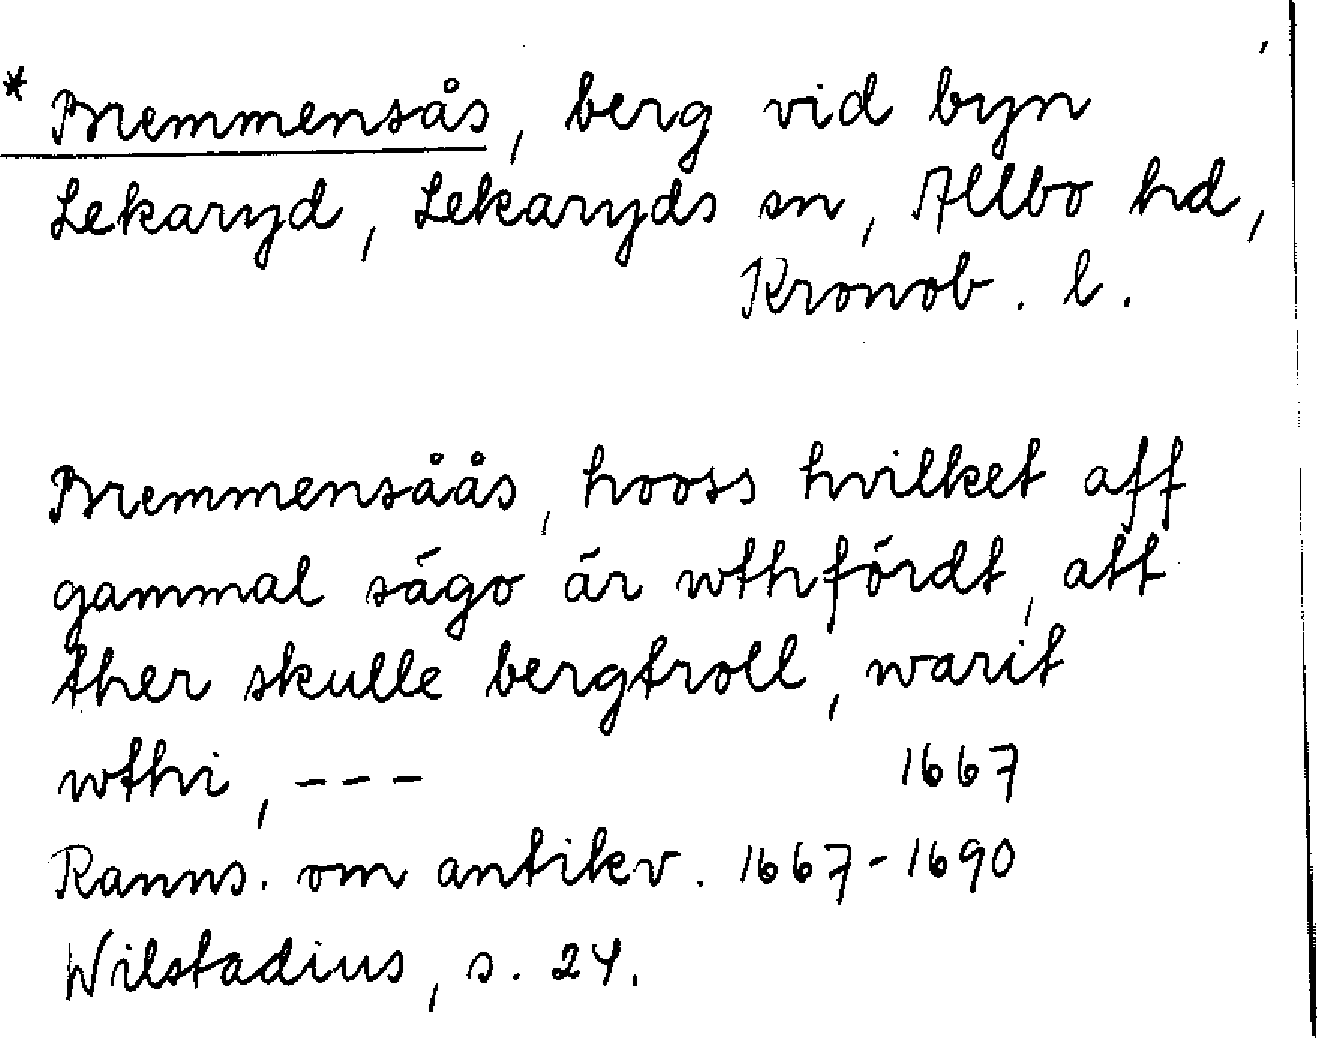 * Bremmensås, berg vid byn
Lekaryd, Lekaryds sn, Allbo hd,
Kronob. l.
Bremmensåås, hooss hvilket aff
gammal sägo är wthfördt, att
ther skulle bergtroll, warit
wthi, ---  1667
Ranns. om antikv. 1667-1690
Wilstadius, s. 24.